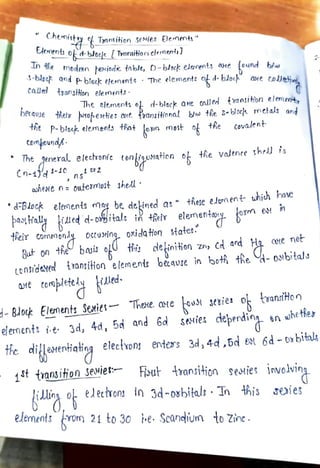 " Chemistry of Transition series Elements"
Elements of d-block [Transition elements]
In the modern periodic table, D-block elements are found b/w
s-block and p-block elements. The elements of d-block are collectively
called transition elements.
The elements of d-block are called transition elements
because their properties are transitional b/w the s-block metals and
the p-block elements that form most of the covalent
compounds.
• The general electronic configuration of the valence shell is
(n-1)d¹⁻¹⁰, ns¹ ᵒʳ ²
where n = outermost shell.
• d-Block elements may be defined as "these element which have
partially filled d-orbitals in their elementary form or in
their commonly occuring oxidation states."
But on the basis of this definition zn, Cd and Hg are not
considered transition elements because in both the d-orbitals
are completely filled.
d-Block Elements Series:- There are four series of transition
elements i.e. 3d, 4d, 5d and 6d series depending on whether
the differentiating electrons enters 3d, 4d, 5d or 6d-orbitals
• 1st transition series:- First transition series involving
filling of electrons in 3d-orbitals. In this series
elements from 21 to 30 i.e. Scandium to Zinc.